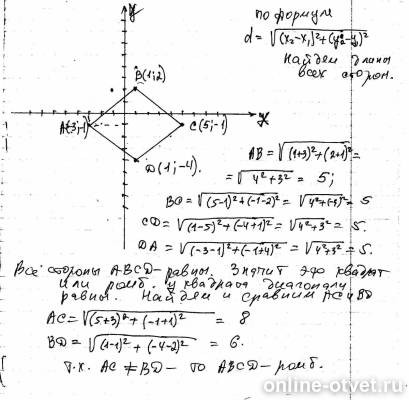 по формуле
d = √(x₂-x₁)²+(y₂-y₁)²
Найдем длины
всех сторон.
y
B(1;2)
A(-3;-1)
C(5;-1)
x
D(1;-4).
AB = √(1+3)²+(2+1)² =
= √4²+3² = 5;
BC = √(5-1)²+(-1-2)² = √4²+(-3)² = 5
CD = √(1-5)²+(-4+1)² = √4²+3² = 5.
DA = √(-3-1)²+(-1+4)² = √4²+3² = 5.
Все стороны ABCD - равны. Значит это квадрат
или ромб. У квадрата диагонали
равны. Найдем и сравним AC и BD
AC = √(5+3)²+(-1+1)² = 8
BD = √(1-1)²+(-4-2)² = 6.
Т.к. AC ≠ BD - то ABCD - ромб.
online-otvet.ru